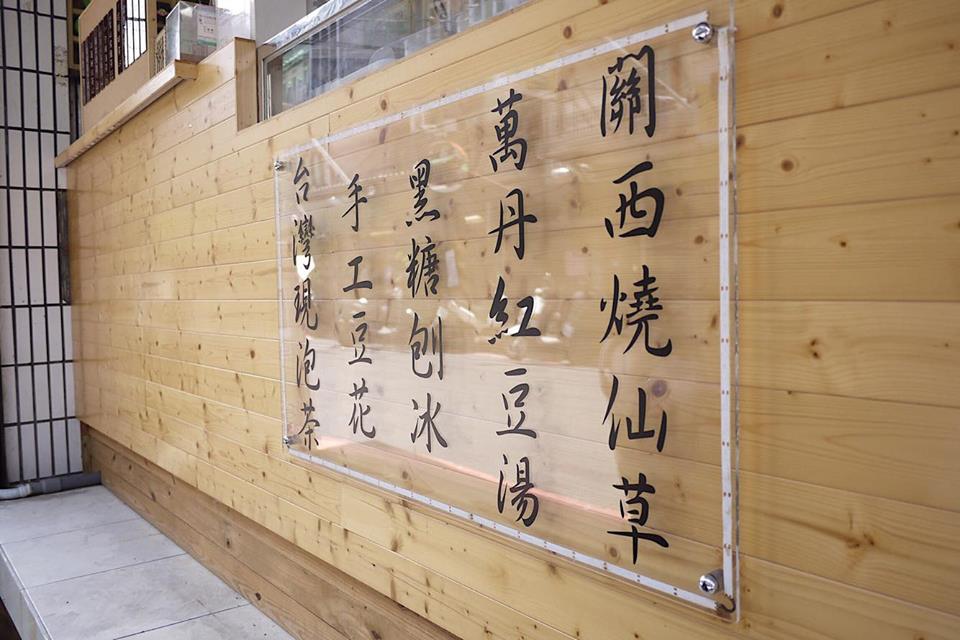 關西燒仙草
萬丹紅豆湯
黑糖刨冰
手工豆花
台灣現泡茶